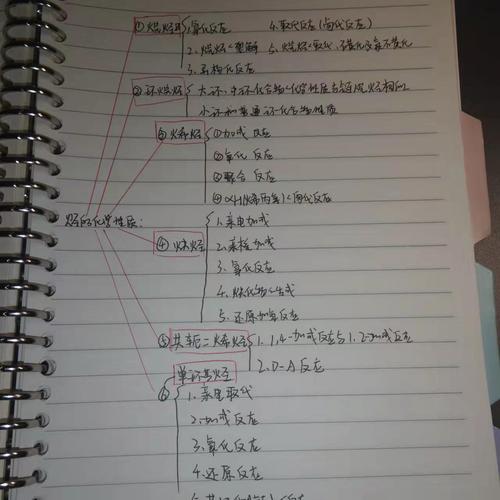 ①烷烃 1.氧化反应 4.取代反应(卤代反应)
2.烷烃 裂解 5.烷烃
3.异构化反应
②环烷烃 大环,中环化合物化学性质与链烷烃相同
小环和普通环化合物性质
③烯烃 ①加成反应
②氧化反应
③聚合反应
④αH(烯丙氢)卤代反应
烃的化学性质:
④炔烃 1.亲电加成
2.亲核加成
3.氧化反应
4.炔化物生成
5.还原加氢反应
⑤共轭二烯烃 1. 1,4-加成反应与1.2-加成反应
2.D-A反应
⑥单环芳烃 1.亲电取代
2.加成反应
3.氧化反应
4.还原反应